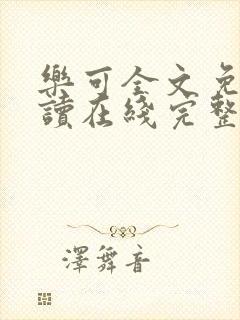 樂可全文免
讀在綫完整
澤舞音